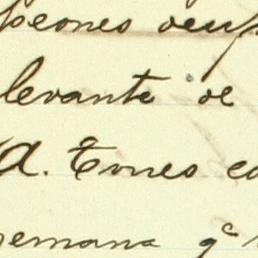 peones ocup
levante de
A. Torres co
semana qe